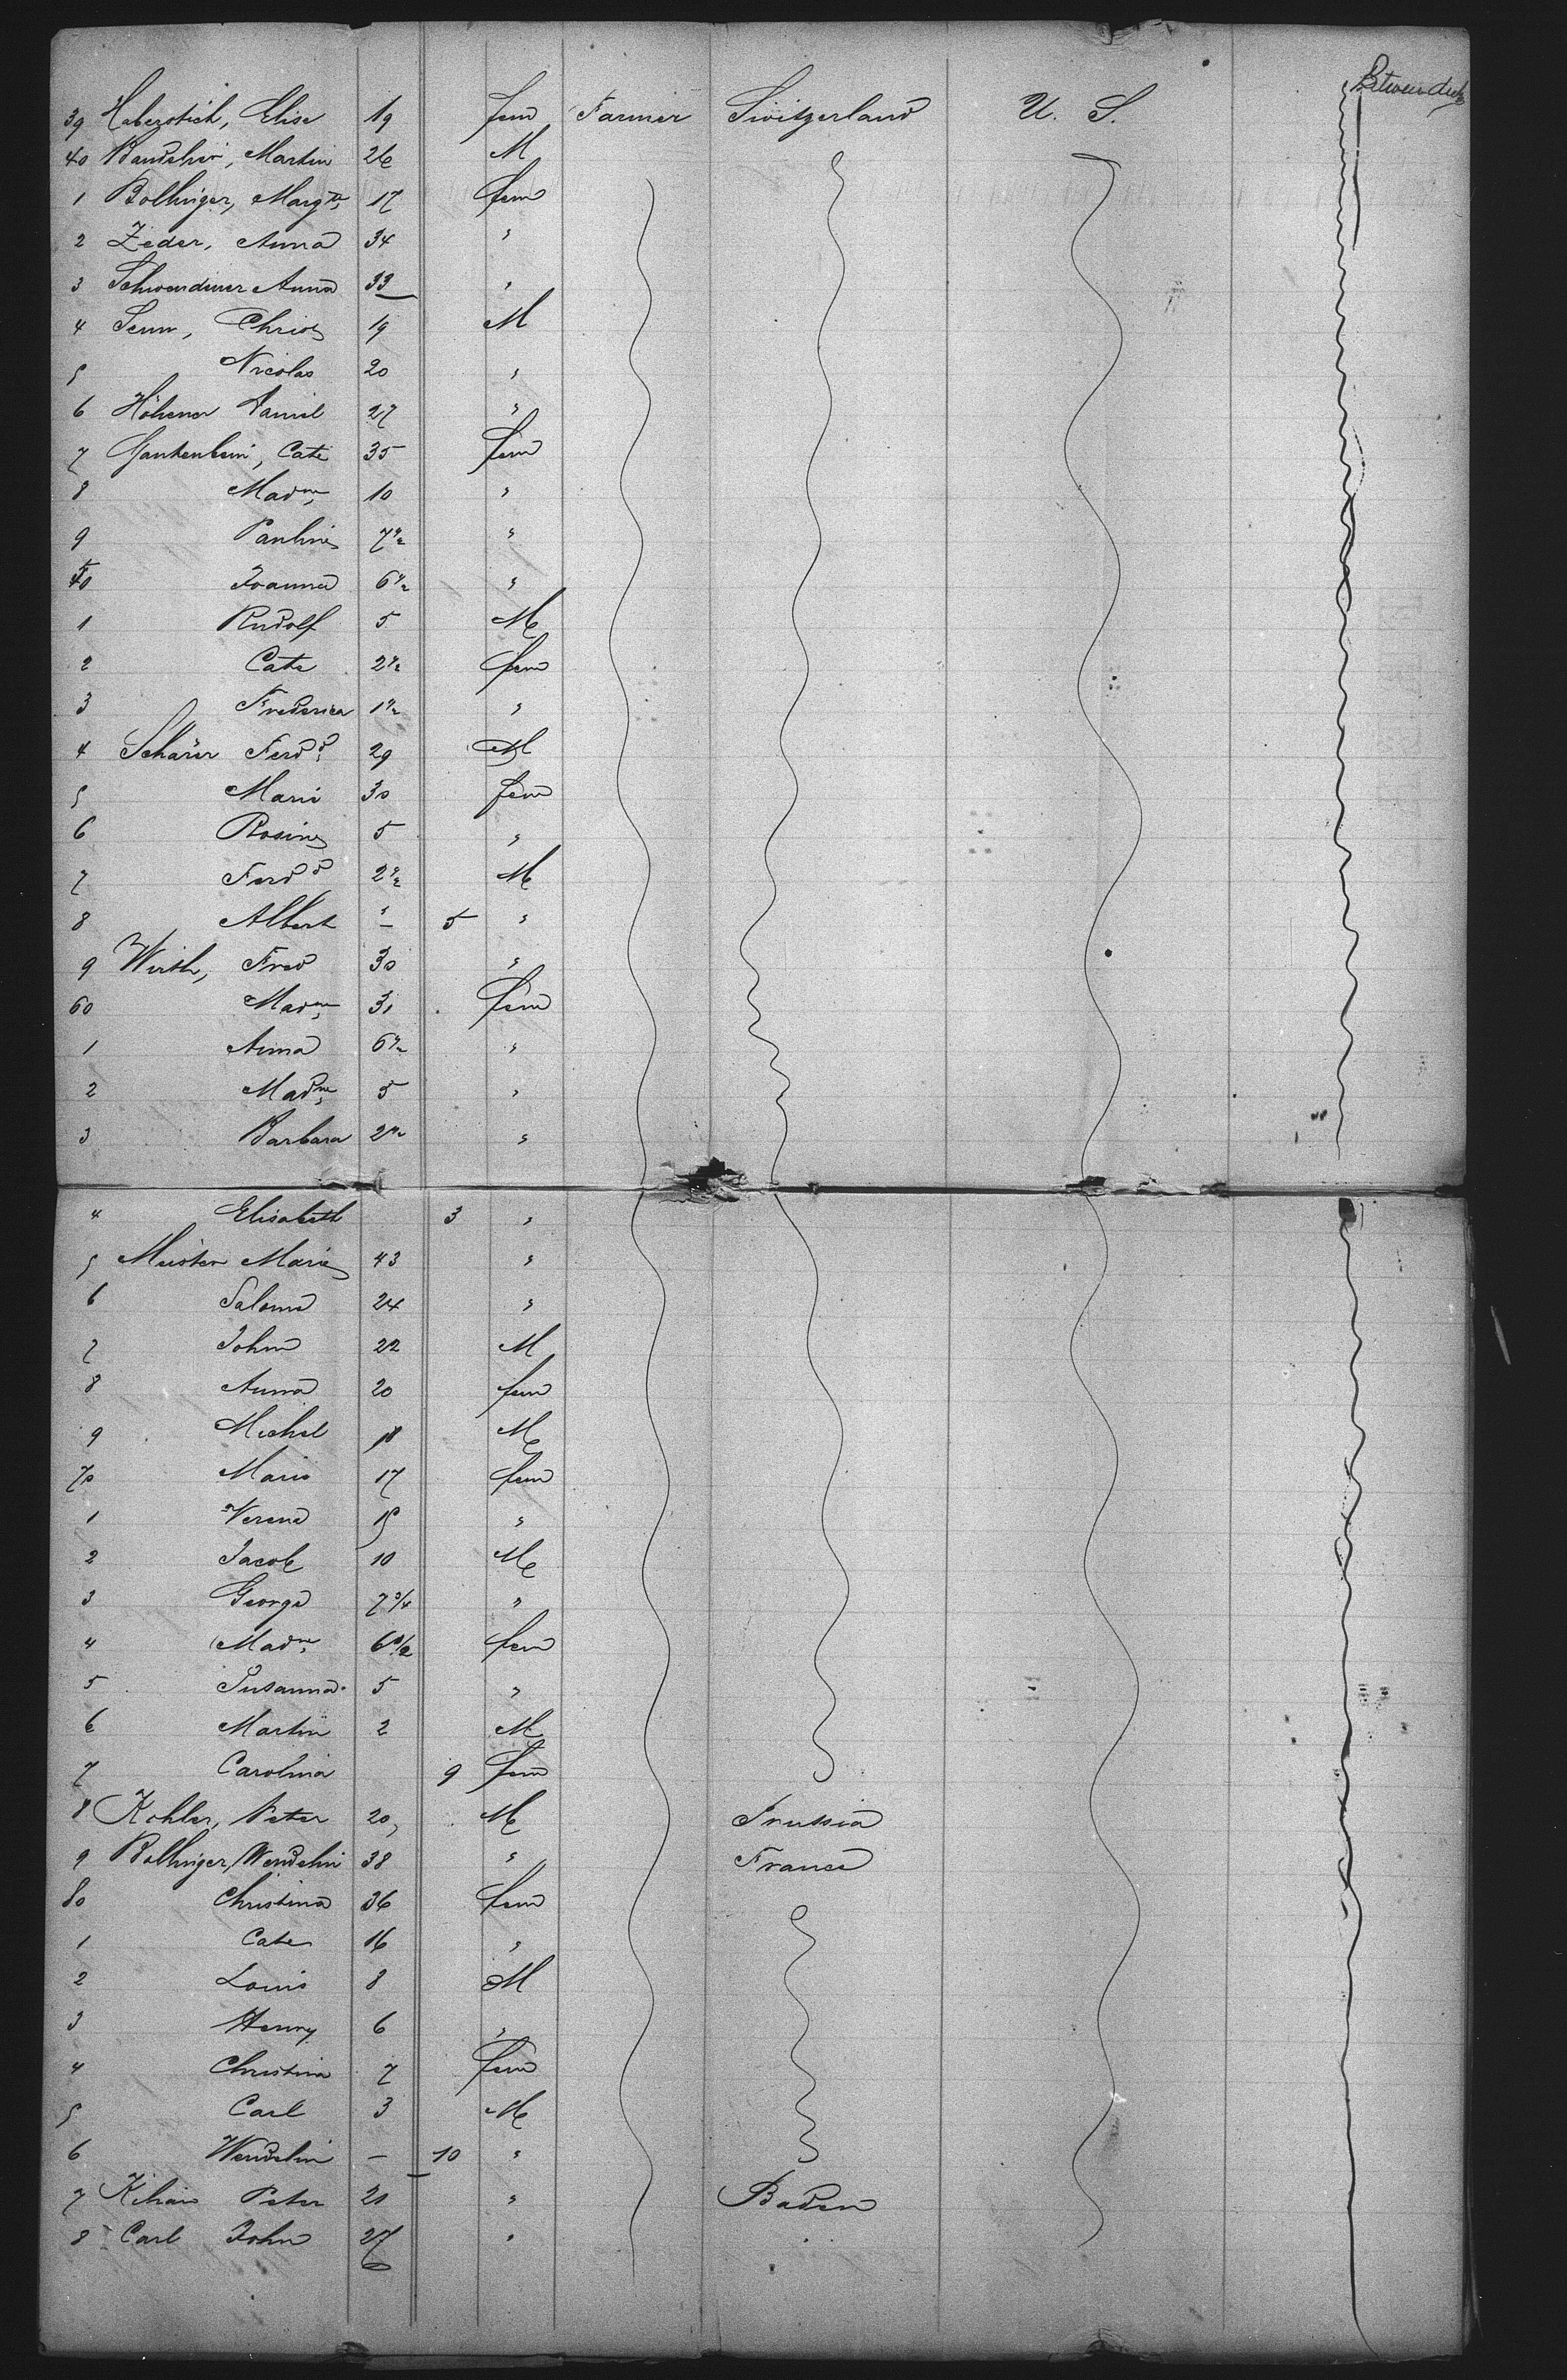 39 Haberstich, Elise 19 fem Farmer Switzerland U. S. Between deck
40 Martin 26 M
1 Bollinger, Margte 17 fem
2 Zeder, Anna 34 "
3 Schwendiner Anna 33 "
4 Senn, Christ 19 M
5 Nicolas 20 "
6 Höhener Daniel 27 "
7 Gantenbein, Cate 35 fem
8 Madne 10 "
9 Pauline 7½ "
50 Joanna 6½ "
1 Rudolf 5 M
2 Cate 2½ fem
3 Frederica 1½ "
4 Schärer Ferdd 29 M
5 Marie 30 fem
6 Rosine 5 "
7 Ferdd 2½ M
8 Albert - 5 "
9 Wirth, Fred 30 "
60 Madne 31 fem
1 Anna 6½ "
2 Madne 5 "
3 Barbara 2½ "
4 Elisabeth 3 "
5 Meister Marie 43 "
6 Salome 24 "
7 John 22 M
8 Anna 20 fem
9 Michel 18 M
70 Marie 17 fem
1 Verena 15 "
2 Jacob 10 M
3 George 7 3/4 "
4 Madne 6 1/2 fem
5 Susanna 5 "
6 Martin 2 M
7 Carolina 9 fem
8 Kohler, Peter 20 M Prussia
9 Bollinger, Wendelin 38 " France
80 Christina 36 fem
1 Cate 16 "
2 Louis 8 M
3 Henry 6 "
4 Christina 7 fem
5 Carl 3 M
6 Wendelin - 10 "
7 Kilian Peter 21 " Baden
8 Carl John 27 "